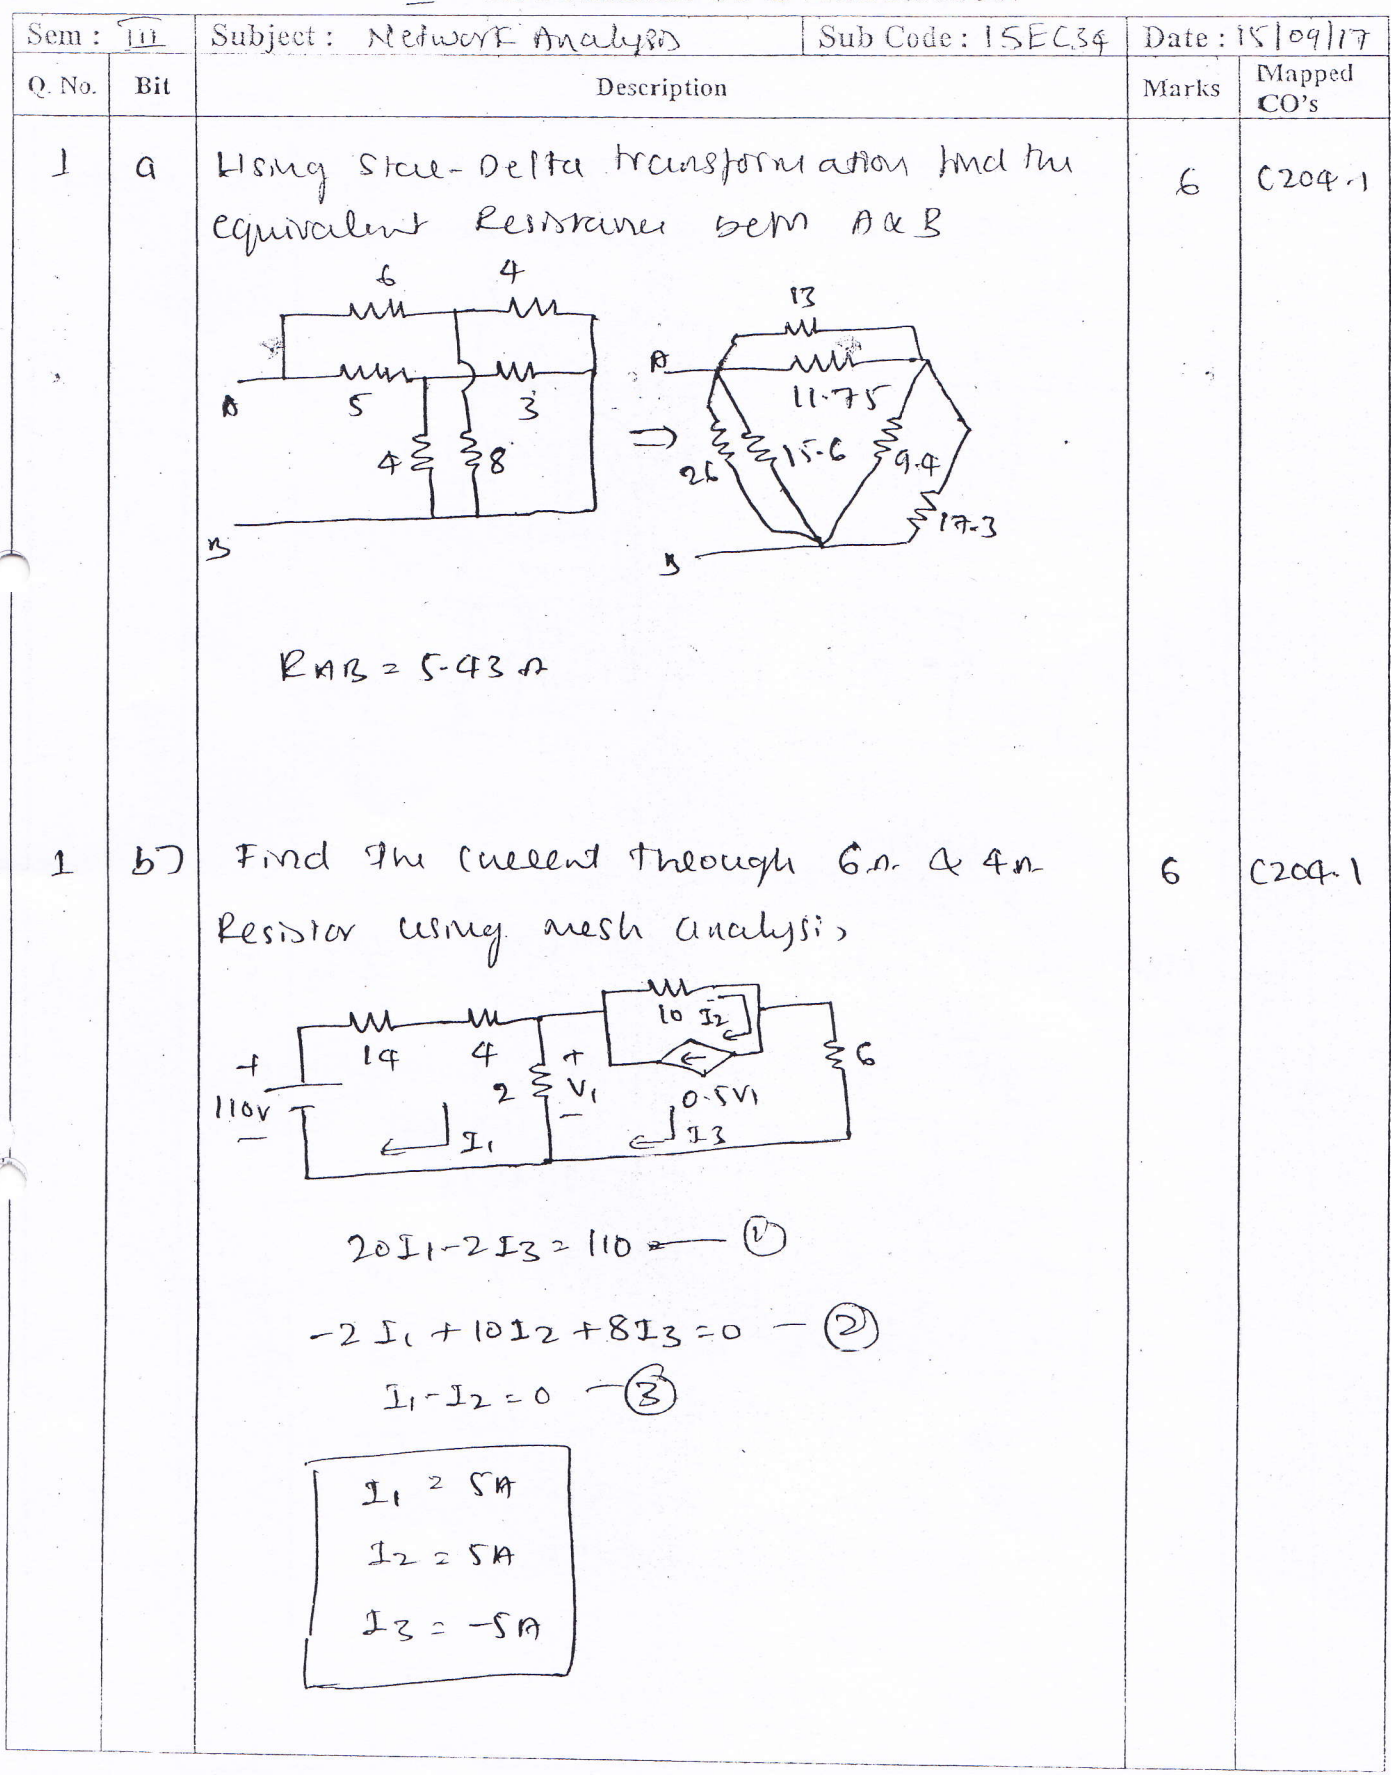 Sem : III Subject : Network Analysis Sub Code : 15EC34 Date : 15/09/17
Q. No. Bit Description Marks Mapped CO's
1 a Using Star-Delta transformation find the 6 C204.1
equivalent Resistance betn A & B
6 4
13
A 5 3
A 11.75
4 8
26 15.6 9.4
17.3
B
B
RAB = 5.43 Ω
1 b) Find the current through 6Ω & 4Ω 6 C204.1
Resistor using mesh analysis
10 I2
+ 14 4 + 6
110V 2 V1 0.5V1
- I1 - I3
20I1-2I3 = 110 — ①
-2I1 + 10I2 + 8I3 = 0 — ②
I1-I2 = 0 — ③
I1 = 5A
I2 = 5A
I3 = -5A